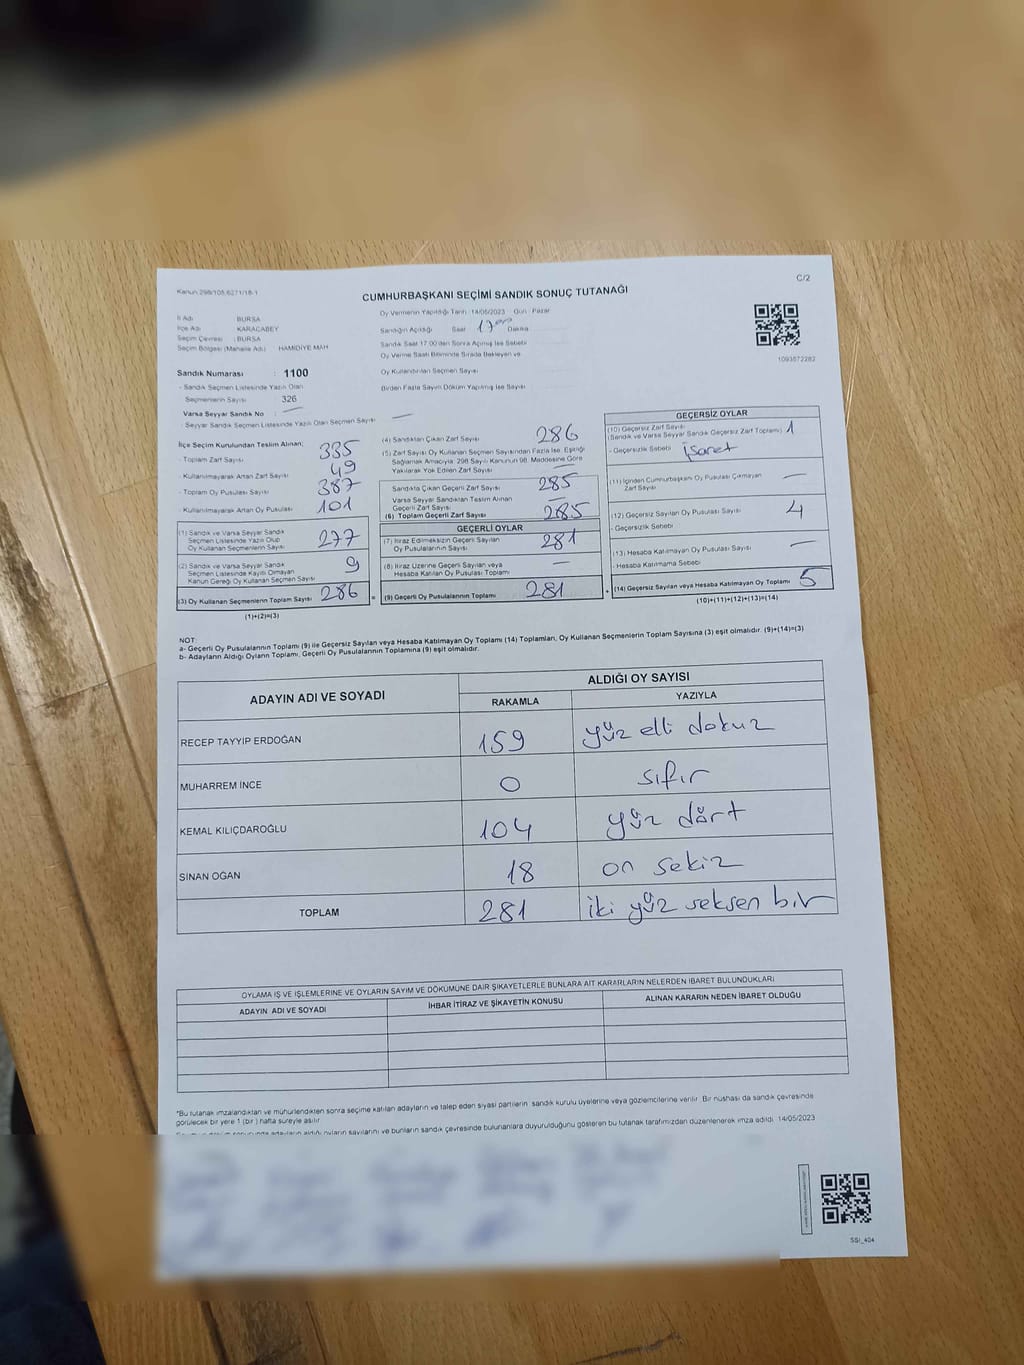 Kanun 298/105,6271/18-1
C/2
CUMHURBAŞKANI SEÇİMİ SANDIK SONUÇ TUTANAĞI
İl Adı : BURSA
İlçe Adı : KARACABEY
Seçim Çevresi : BURSA
Seçim Bölgesi (Mahalle Adı) : HAMİDİYE MAH
Sandık Numarası : 1100
- Sandık Seçmen Listesinde Yazılı Olan
Seçmenlerin Sayısı : 326
Varsa Seyyar Sandık No : —
- Seyyar Sandık Seçmen Listesinde Yazılı Olan Seçmen Sayısı —
Oy Vermenin Yapıldığı Tarih : 14/05/2023 Gün : Pazar
Sandığın Açıldığı Saat 17 00 Dakika
Sandık Saat 17:00'den Sonra Açılmış İse Sebebi
Oy Verme Saati Bitiminde Sırada Bekleyen ve
Oy Kullandırılan Seçmen Sayısı
Birden Fazla Sayım Döküm Yapılmış İse Sayısı
1093572282
İlçe Seçim Kurulundan Teslim Alınan;
- Toplam Zarf Sayısı 335
- Kullanılmayarak Artan Zarf Sayısı 49
- Toplam Oy Pusulası Sayısı 387
- Kullanılmayarak Artan Oy Pusulası 101
(1) Sandık ve Varsa Seyyar Sandık
Seçmen Listesinde Yazılı Olup
Oy Kullanan Seçmenlerin Sayısı 277
(2) Sandık ve Varsa Seyyar Sandık
Seçmen Listesinde Kayıtlı Olmayan
Kanun Gereği Oy Kullanan Seçmen Sayısı 9
(3) Oy Kullanan Seçmenlerin Toplam Sayısı 286
(1)+(2)=(3)
(4) Sandıktan Çıkan Zarf Sayısı 286
(5) Zarf Sayısı Oy Kullanan Seçmen Sayısından Fazla İse, Eşitliği
Sağlamak Amacıyla, 298 Sayılı Kanunun 98. Maddesine Göre
Yakılarak Yok Edilen Zarf Sayısı —
Sandıkta Çıkan Geçerli Zarf Sayısı 285
Varsa Seyyar Sandıktan Teslim Alınan
Geçerli Zarf Sayısı —
(6) Toplam Geçerli Zarf Sayısı 285
GEÇERLİ OYLAR
(7) İtiraz Edilmeksizin Geçerli Sayılan
Oy Pusulalarının Sayısı 281
(8) İtiraz Üzerine Geçerli Sayılan veya
Hesaba Katılan Oy Pusulası Toplamı —
= (9) Geçerli Oy Pusulalarının Toplamı 281
GEÇERSİZ OYLAR
(10) Geçersiz Zarf Sayısı
(Sandık ve Varsa Seyyar Sandık Geçersiz Zarf Toplamı) 1
- Geçersizlik Sebebi işaret
(11) İçinden Cumhurbaşkanı Oy Pusulası Çıkmayan
Zarf Sayısı —
(12) Geçersiz Sayılan Oy Pusulası Sayısı 4
- Geçersizlik Sebebi
(13) Hesaba Katılmayan Oy Pusulası Sayısı —
- Hesaba Katılmama Sebebi
+ (14) Geçersiz Sayılan veya Hesaba Katılmayan Oy Toplamı 5
(10)+(11)+(12)+(13)=(14)
NOT:
a- Geçerli Oy Pusulalarının Toplamı (9) ile Geçersiz Sayılan veya Hesaba Katılmayan Oy Toplamı (14) Toplamları, Oy Kullanan Seçmenlerin Toplam Sayısına (3) eşit olmalıdır. (9)+(14)=(3)
b- Adayların Aldığı Oyların Toplamı, Geçerli Oy Pusulalarının Toplamına (9) eşit olmalıdır.
ADAYIN ADI VE SOYADI
ALDIĞI OY SAYISI
RAKAMLA YAZIYLA
RECEP TAYYİP ERDOĞAN 159 yüz elli dokuz
MUHARREM İNCE 0 sıfır
KEMAL KILIÇDAROĞLU 104 yüz dört
SİNAN OĞAN 18 on sekiz
TOPLAM 281 iki yüz seksen bir
OYLAMA İŞ VE İŞLEMLERİNE VE OYLARIN SAYIM VE DÖKÜMÜNE DAİR ŞİKAYETLERLE BUNLARA AİT KARARLARIN NELERDEN İBARET BULUNDUKLARI
ADAYIN ADI VE SOYADI İHBAR İTİRAZ VE ŞİKAYETİN KONUSU ALINAN KARARIN NEDEN İBARET OLDUĞU
*Bu tutanak imzalandıktan ve mühürlendikten sonra seçime katılan adayların ve talep eden siyasi partilerin sandık kurulu üyelerine veya gözlemcilerine verilir. Bir nüshası da sandık çevresinde
görülecek bir yere 1 (bir) hafta süreyle asılır.
adayların aldığı oyların sayılarını ve bunların sandık çevresinde bulunanlara duyurulduğunu gösteren bu tutanak tarafımızdan düzenlenerek imza edildi. 14/05/2023
SSI_404